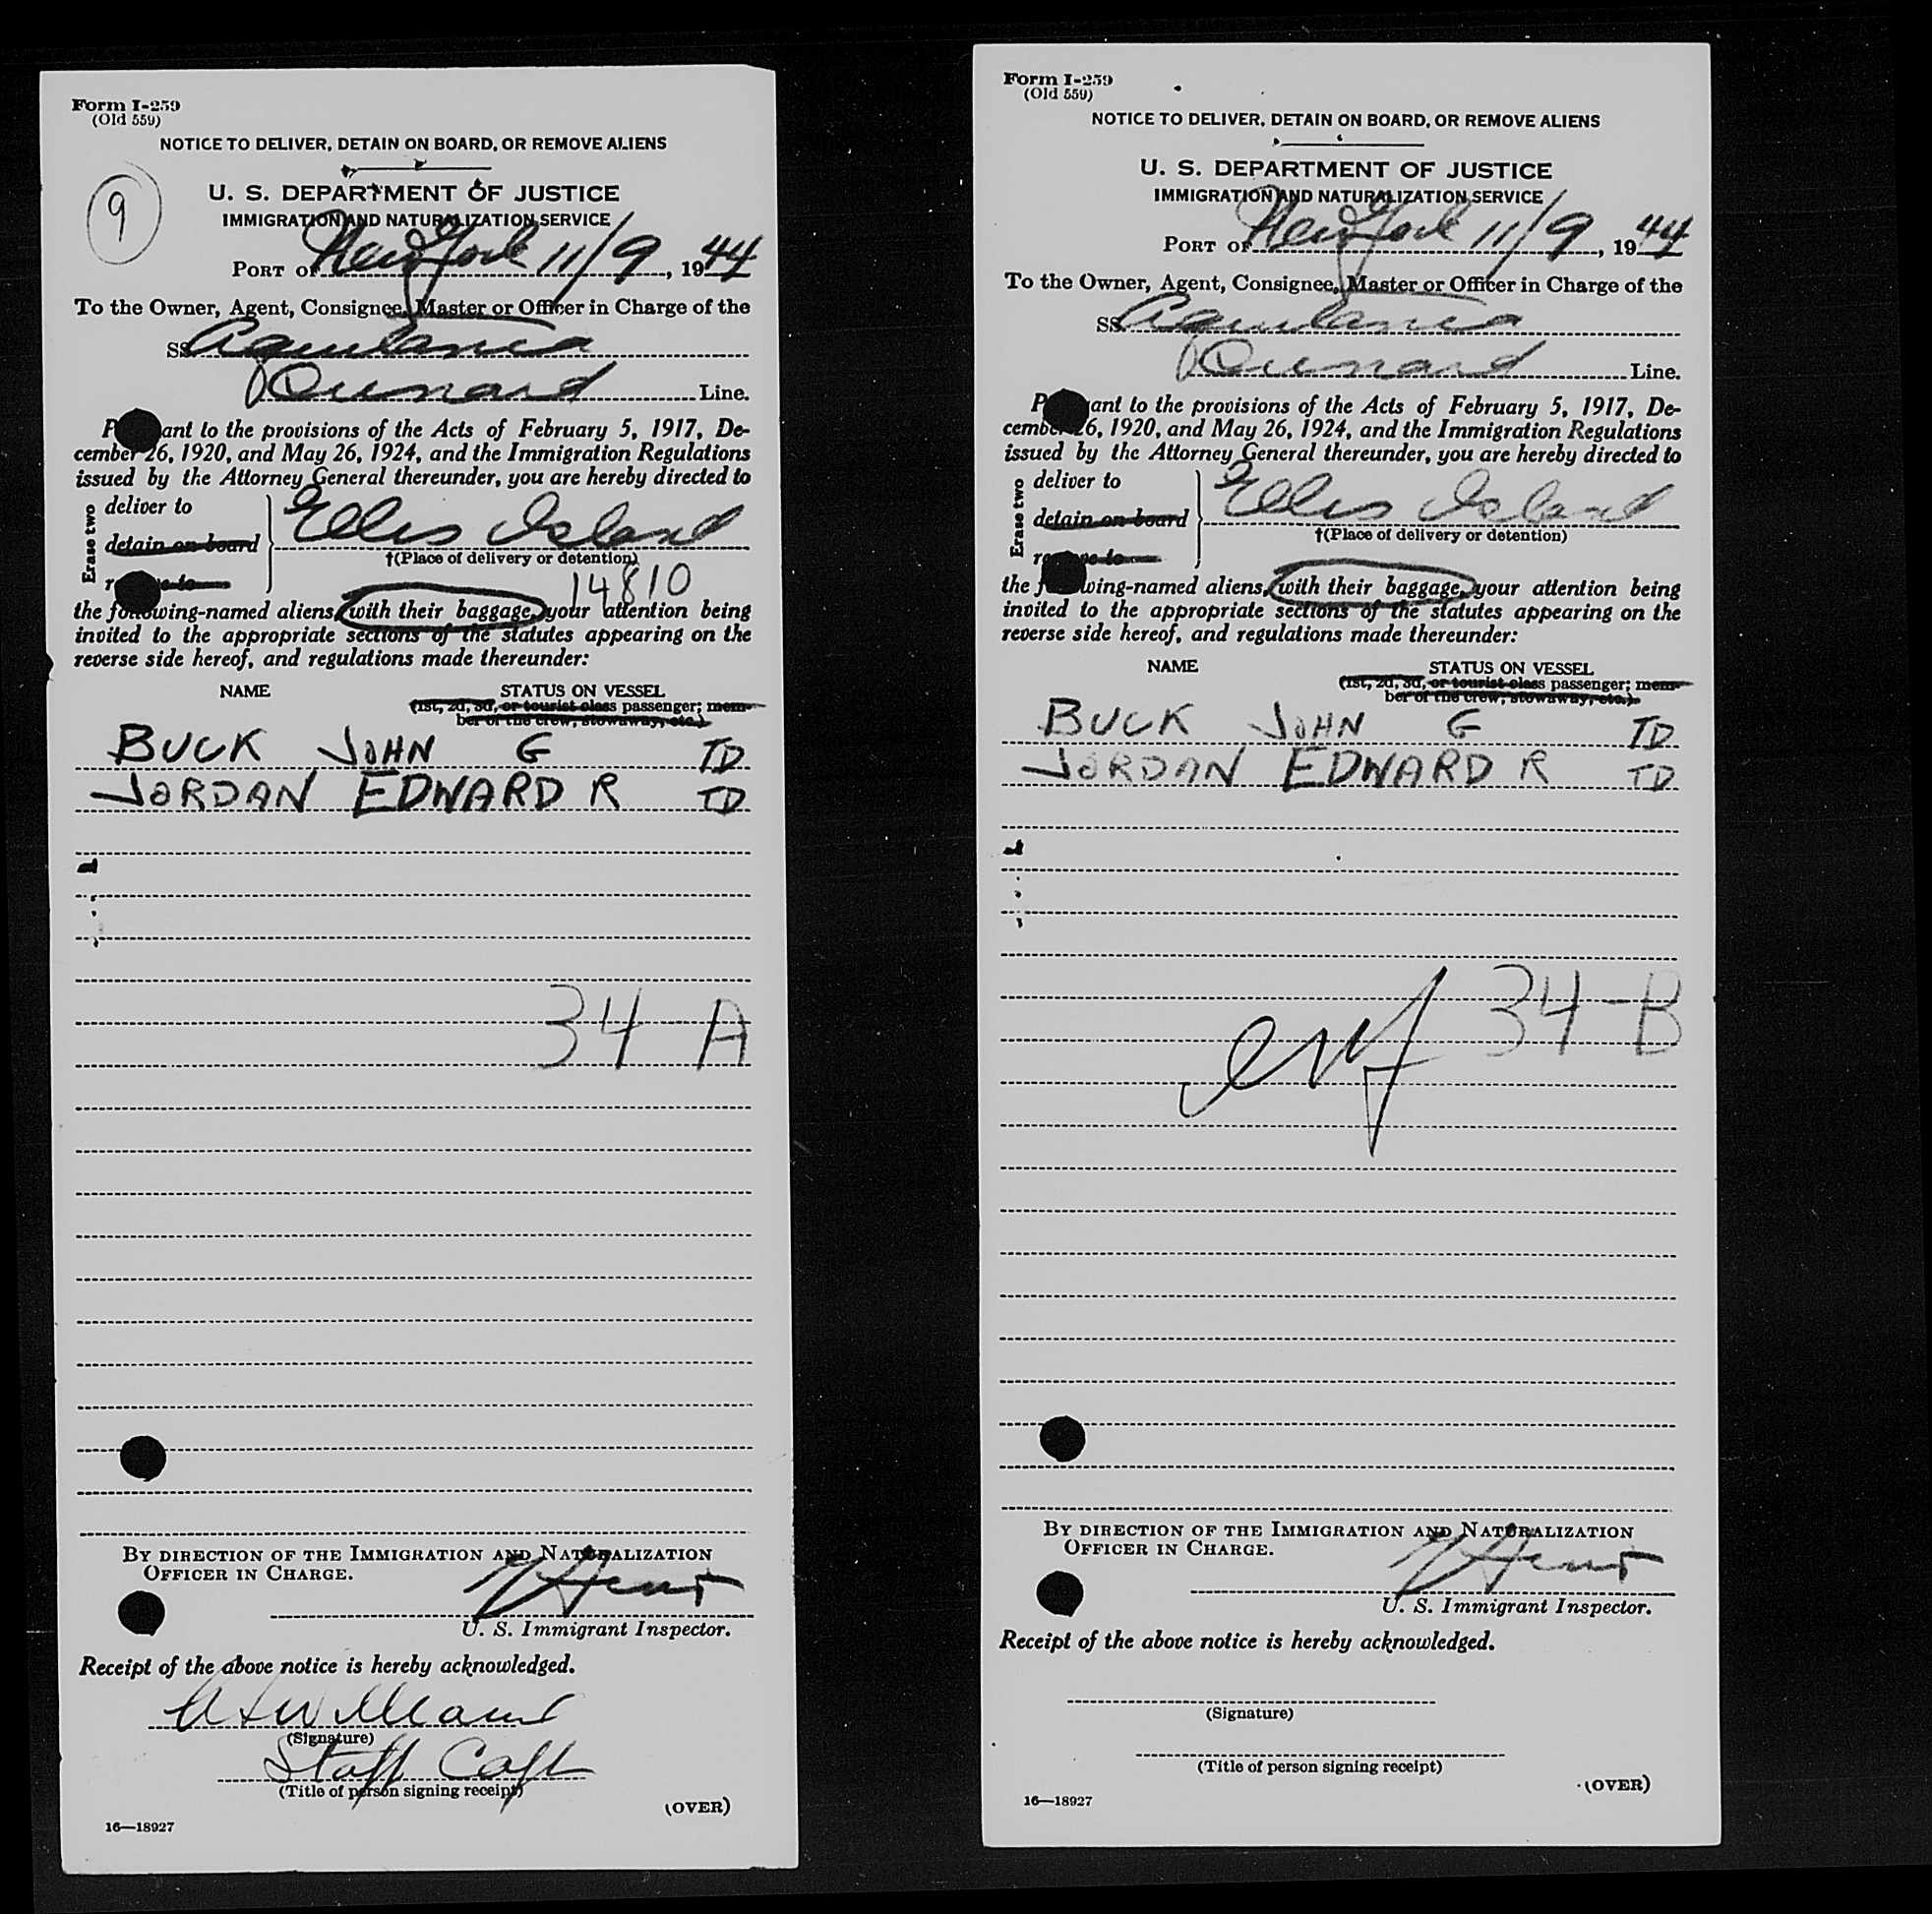 Form I-259
(Old 559)
NOTICE TO DELIVER, DETAIN ON BOARD, OR REMOVE ALIENS
9
U. S. DEPARTMENT OF JUSTICE
IMMIGRATION AND NATURALIZATION SERVICE
PORT OF New York 11/9, 1944
To the Owner, Agent, Consignee, Master or Officer in Charge of the
SS Aquitania
Cunard Line.
P ant to the provisions of the Acts of February 5, 1917, De-
cember 26, 1920, and May 26, 1924, and the Immigration Regulations
issued by the Attorney General thereunder, you are hereby directed to
Erase two
deliver to
detain on board
Ellis Island
†(Place of delivery or detention)
14810
the following-named aliens, with their baggage, your attention being
invited to the appropriate sections of the statutes appearing on the
reverse side hereof, and regulations made thereunder:
NAME STATUS ON VESSEL
(1st, 2d, 3d, or tourist class passenger; mem-
ber of the crew, stowaway, etc.)
BUCK JOHN G TD
JORDAN EDWARD R TD
34-A
BY DIRECTION OF THE IMMIGRATION AND NATURALIZATION
OFFICER IN CHARGE.
U. S. Immigrant Inspector.
Receipt of the above notice is hereby acknowledged.
Williams
(Signature)
Staff Capt
(Title of person signing receipt)
(OVER)
16—18927
Form I-259
(Old 559)
NOTICE TO DELIVER, DETAIN ON BOARD, OR REMOVE ALIENS
U. S. DEPARTMENT OF JUSTICE
IMMIGRATION AND NATURALIZATION SERVICE
PORT OF New York 11/9, 1944
To the Owner, Agent, Consignee, Master or Officer in Charge of the
SS Aquitania
Cunard Line.
P ant to the provisions of the Acts of February 5, 1917, De-
cember 26, 1920, and May 26, 1924, and the Immigration Regulations
issued by the Attorney General thereunder, you are hereby directed to
Erase two
deliver to
detain on board
Ellis Island
†(Place of delivery or detention)
the f wing-named aliens, with their baggage, your attention being
invited to the appropriate sections of the statutes appearing on the
reverse side hereof, and regulations made thereunder:
NAME STATUS ON VESSEL
(1st, 2d, 3d, or tourist class passenger; mem-
ber of the crew, stowaway, etc.)
BUCK JOHN G TD
JORDAN EDWARD R TD
34-B
BY DIRECTION OF THE IMMIGRATION AND NATURALIZATION
OFFICER IN CHARGE.
U. S. Immigrant Inspector.
Receipt of the above notice is hereby acknowledged.
(Signature)
(Title of person signing receipt)
(OVER)
16—18927